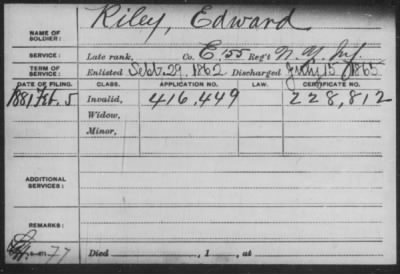 Riley, Edward
NAME OF SOLDIER:
SERVICE: Late rank, Co. E, 155 Reg't N. Y. Inf.
TERM OF SERVICE: Enlisted Sept. 29, 1862 Discharged July 15, 1865
DATE OF FILING. CLASS. APPLICATION NO. LAW. CERTIFICATE NO.
1881 Feb. 5 Invalid, 416,449 228,812
Widow,
Minor,
ADDITIONAL SERVICES:
REMARKS:
77
Died , 1 , at